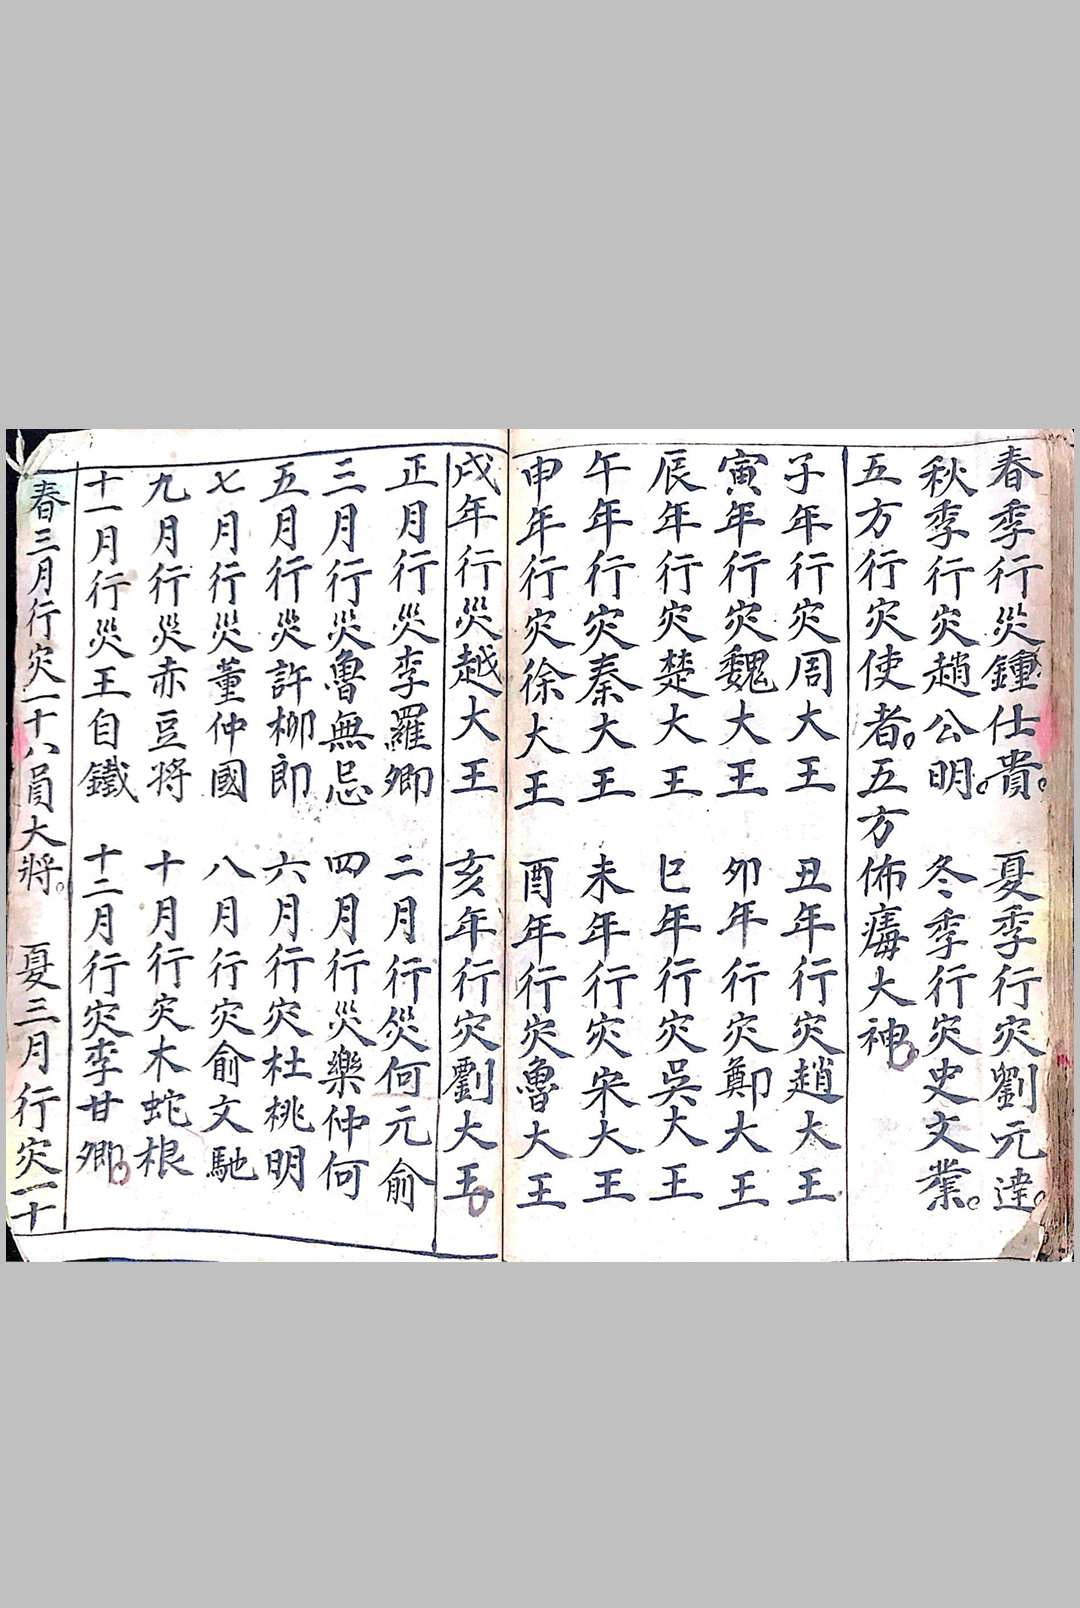 春季行災鍾仕貴。 夏季行灾劉元達。
秋季行灾趙公明。 冬季行灾史文業。
五方行灾使者。五方佈痗大神
子年行灾周大王 丑年行灾趙大王
寅年行灾魏大王 卯年行灾鄭大王
辰年行灾楚大王 巳年行灾吳大王
午年行灾秦大王 未年行灾宋大王
申年行灾徐大王 酉年行灾魯大王
戌年行災越大王 亥年行灾劉大王
正月行災李羅卿 二月行災何元俞
三月行災魯無忌 四月行災樂仲何
五月行災許柳郎 六月行灾杜桃明
七月行災董仲國 八月行灾俞文馳
九月行災赤豆將 十月行灾木蛇根
十一月行災王自鐵 十二月行灾李甘卿
春三月行灾一十八員大將。 夏三月行灾一十